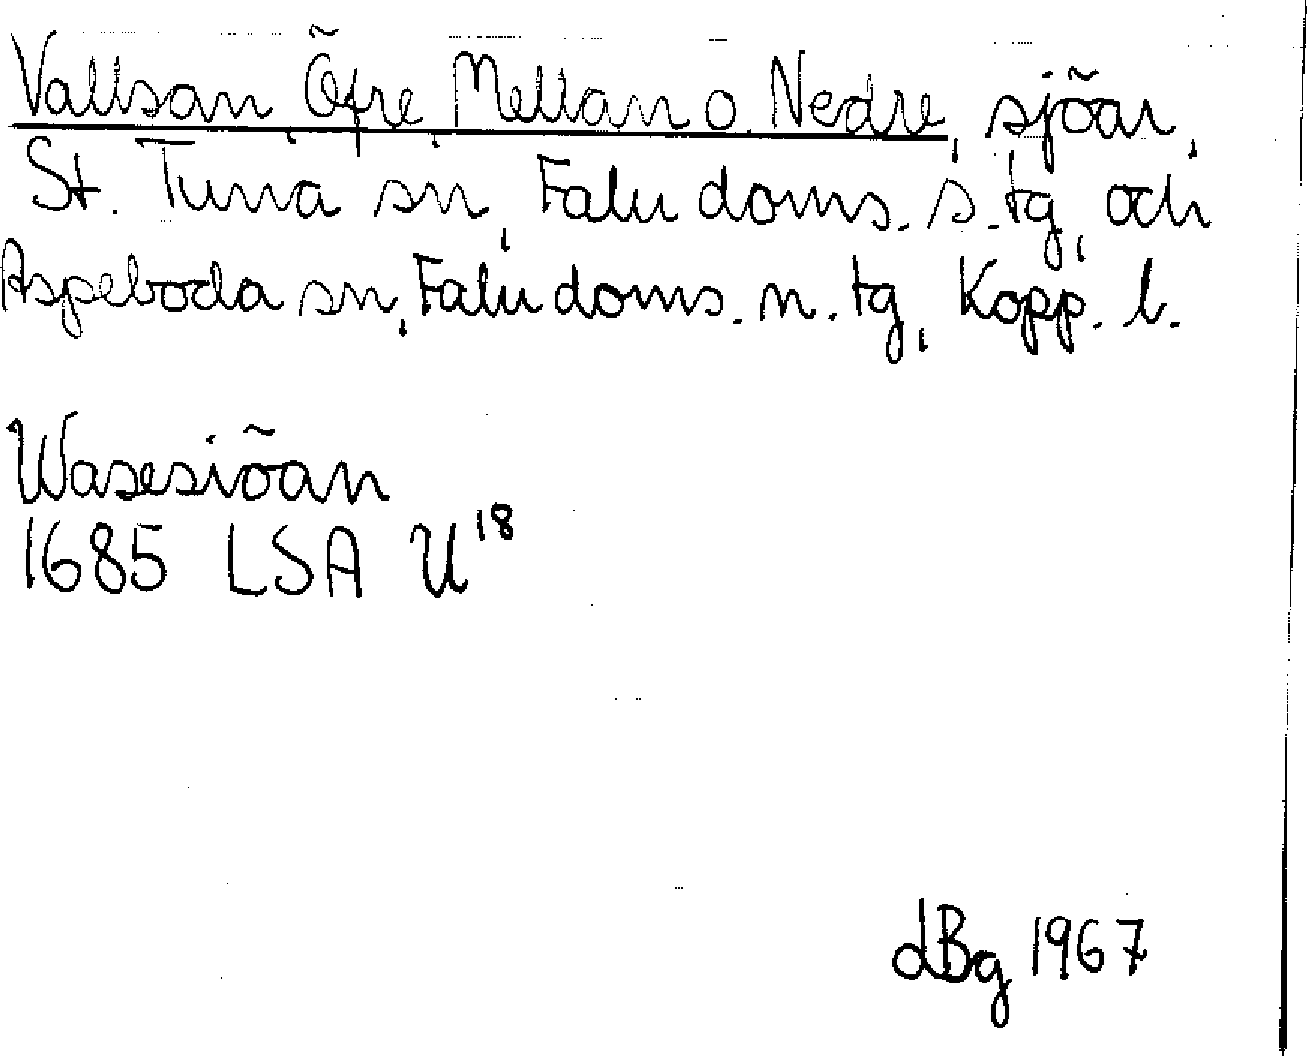 Vallsan, Öfre, Mellan o. Nedre, sjöar,
St. Tuna sn, Falu doms. s. tg, och
Aspeboda sn, Falu doms. n. tg, Kopp. l.
Wasesiöan
1685 LSA U18
dBg 1967